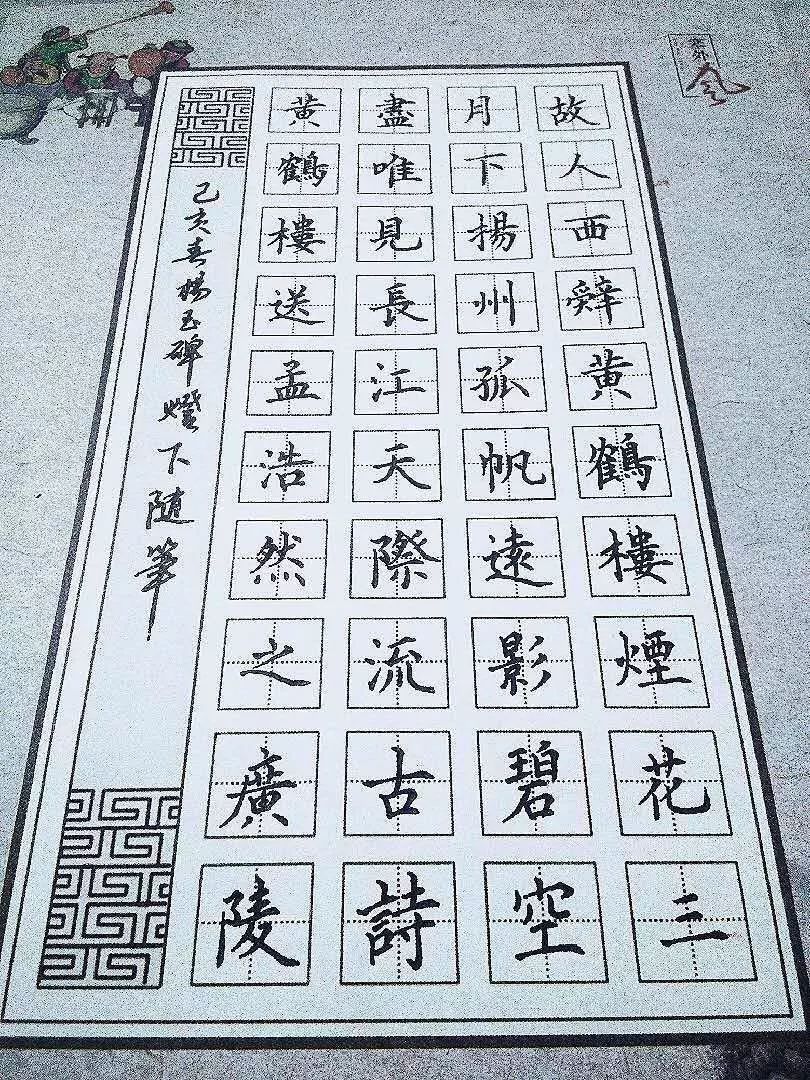 故人西辭黄鶴樓煙花三
月下揚州孤帆遠影碧空
盡唯見長江天際流古詩
黄鶴樓送孟浩然之廣陵
己亥春楊玉碑燈下隨筆